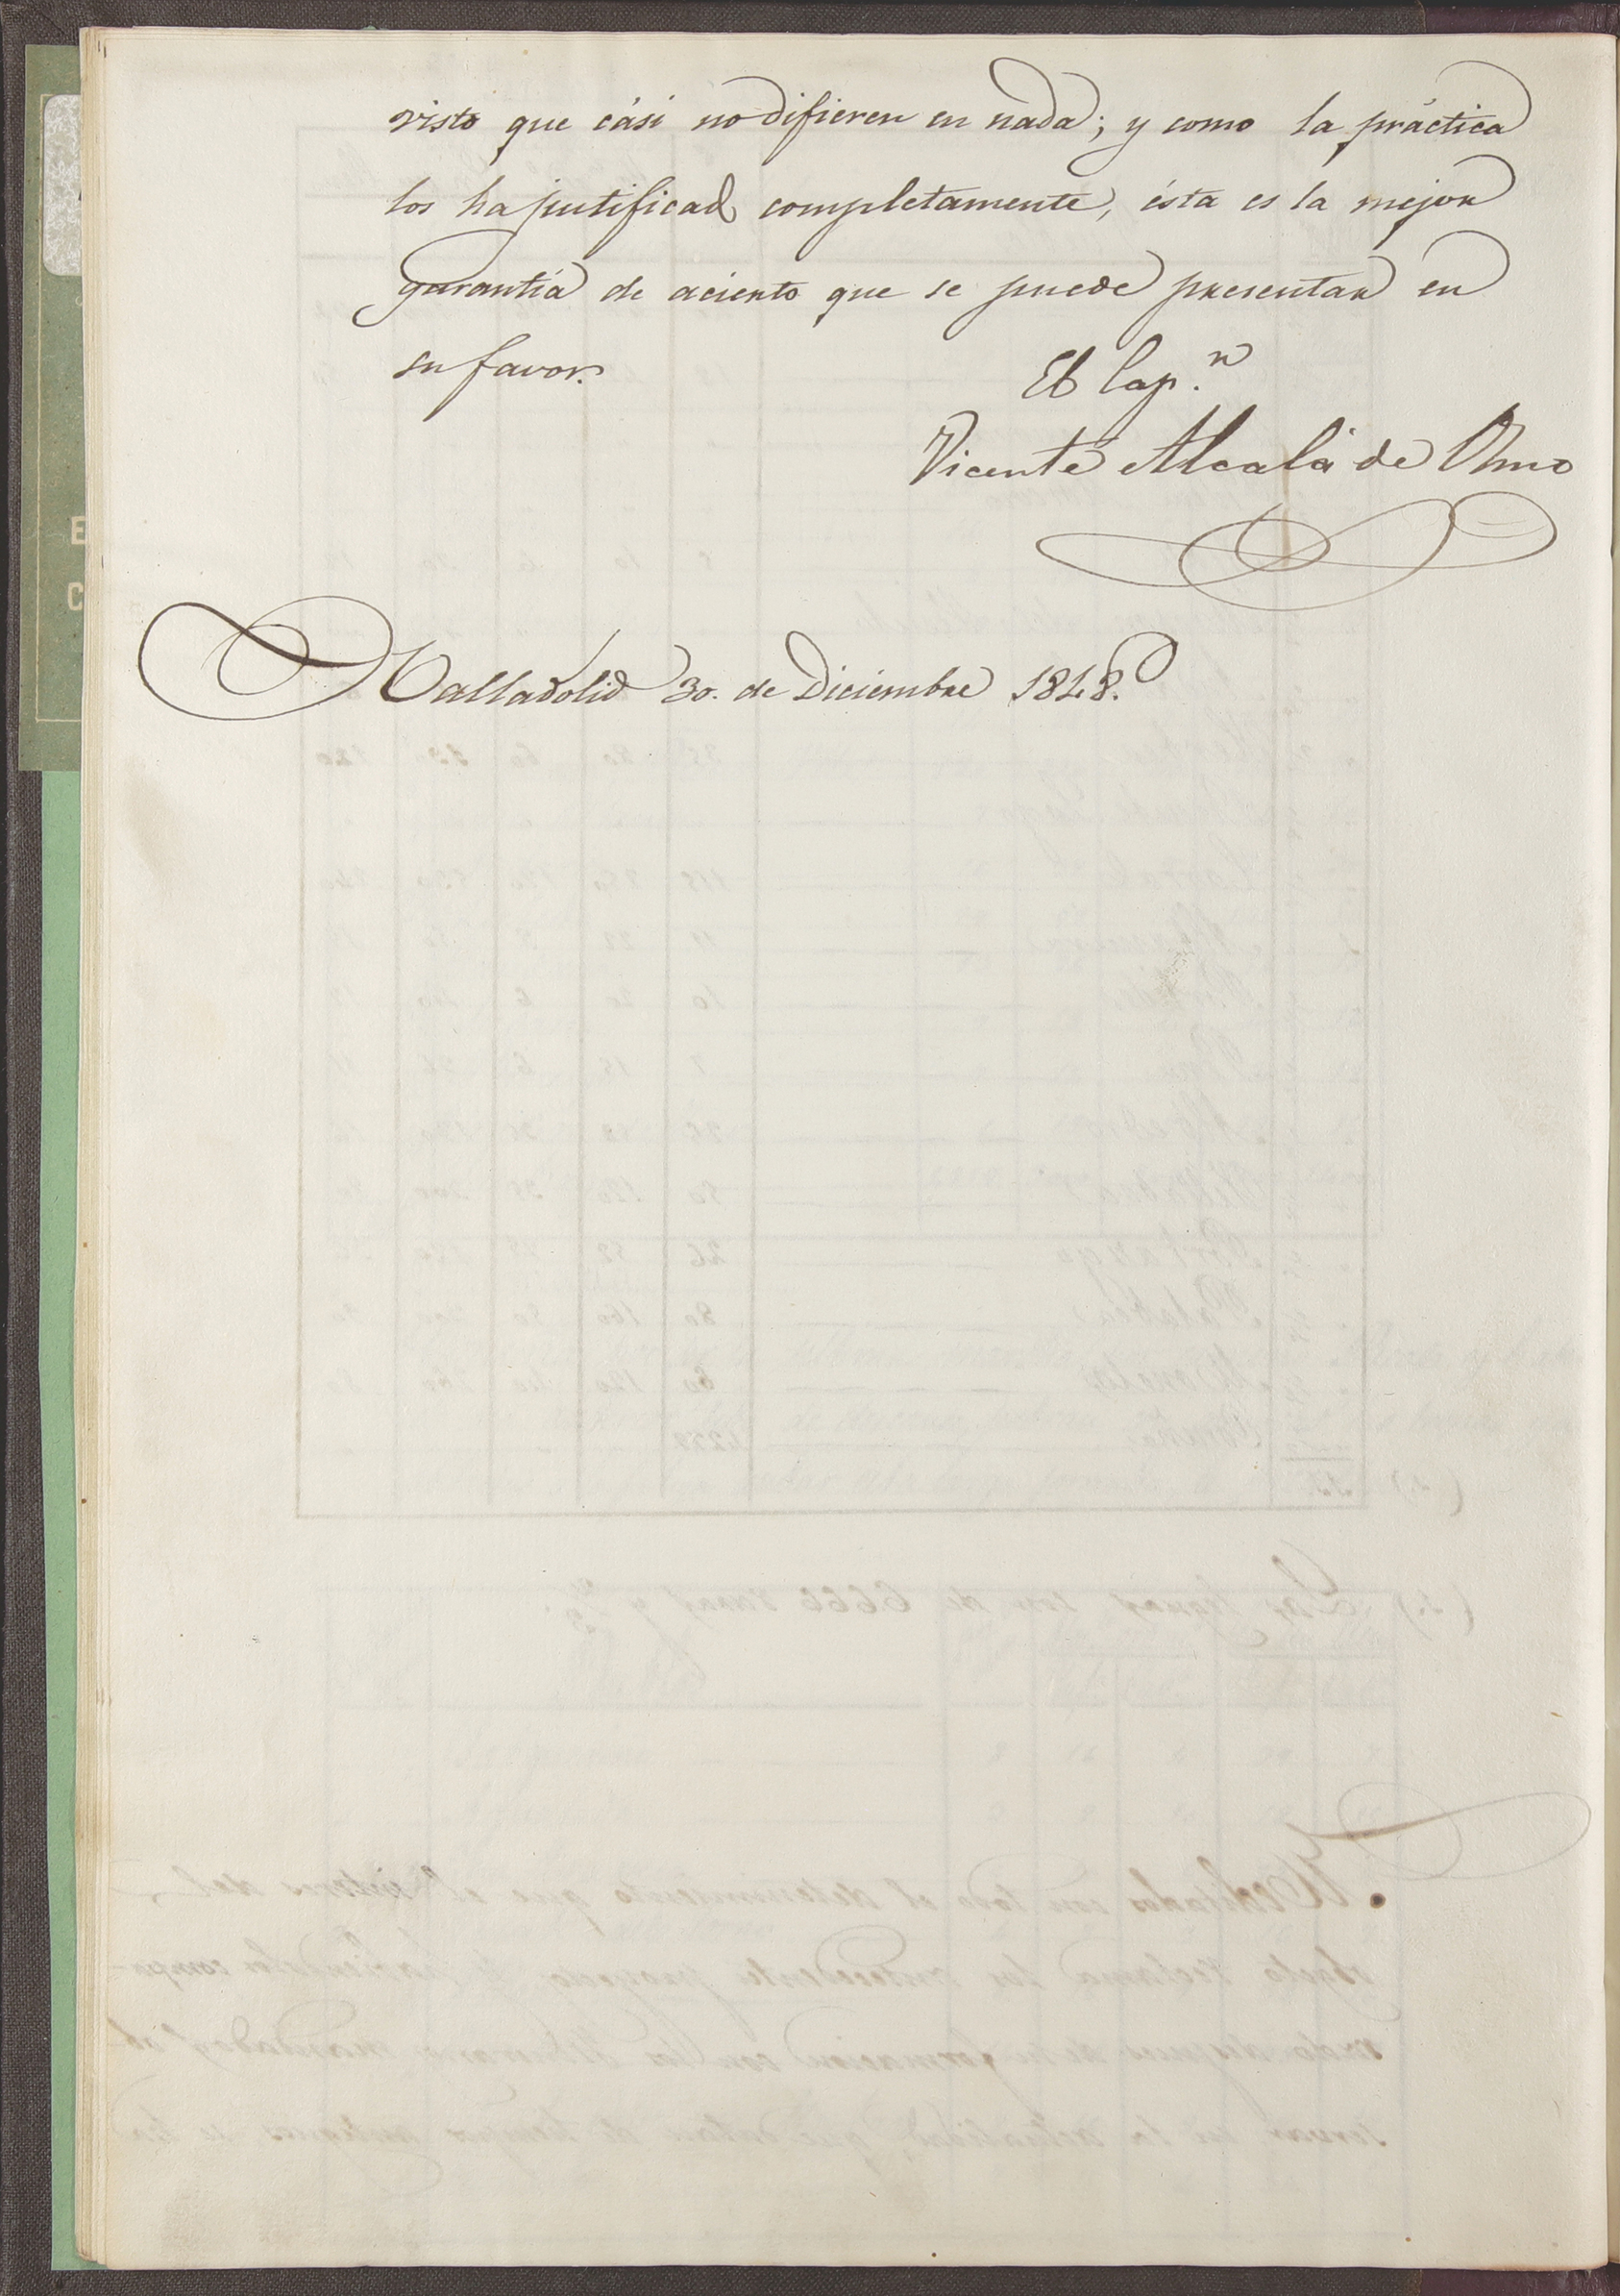 visto que cási no difieren en nada; y como la práctica
los ha justificad completamente, ésta es la mejor
garantía de acierto que se puede presentar en
su favor.
El Cap.n
Vicente Alcalá de Olmo
Valladolid 30. de Diciembre 1848.